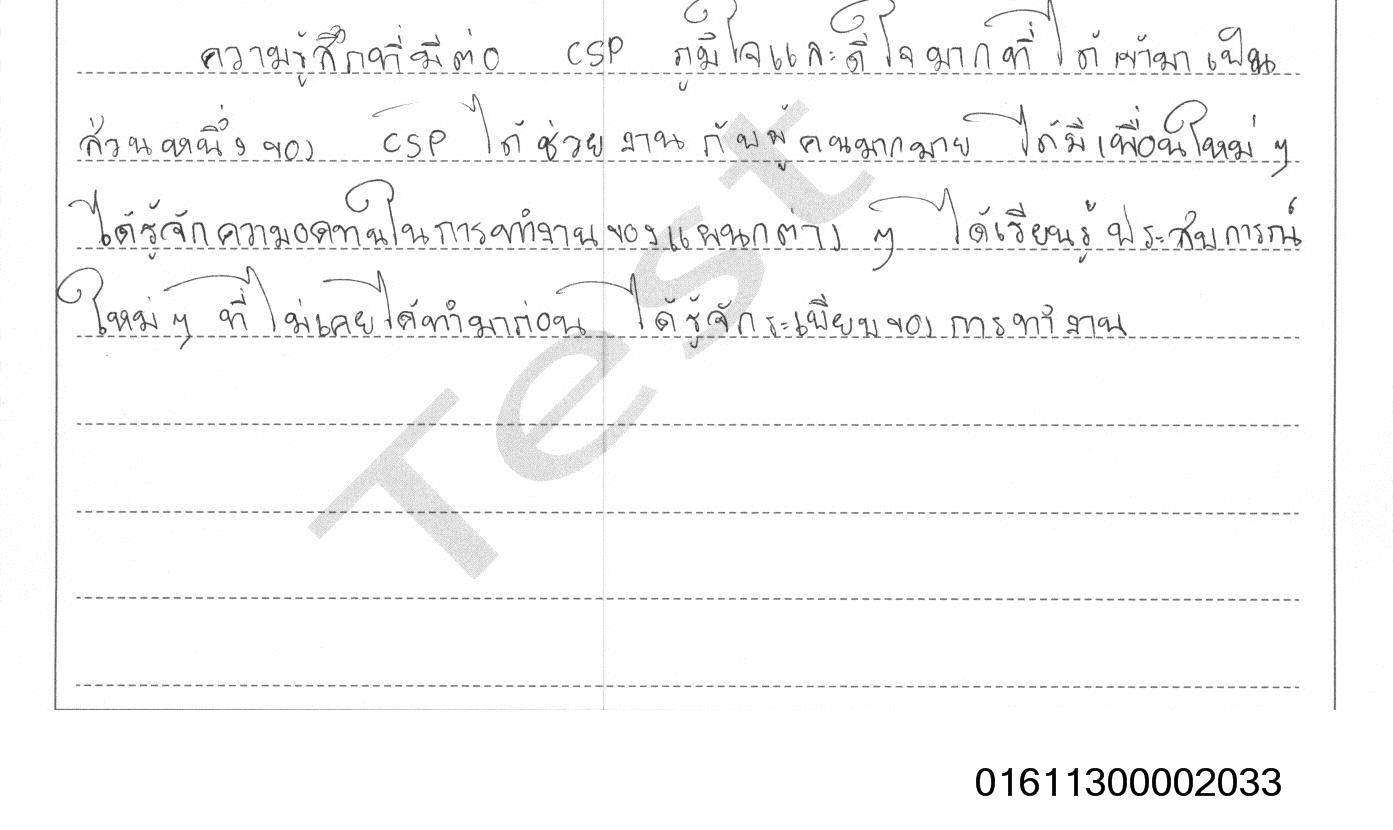 ความรู้สึกที่มีต่อ CSP ภูมิใจและดีใจมากที่ได้เข้ามาเป็น
ส่วนหนึ่งของ CSP ได้ช่วยงานกับผู้คนมากมาย ได้มีเพื่อนใหม่ ๆ
ได้รู้จักความอดทนในการทำงานของแผนกต่าง ๆ ได้เรียนรู้ประสบการณ์
ใหม่ ๆ ที่ไม่เคยได้ทำมาก่อน ได้รู้จักระเบียบของการทำงาน
Test
01611300002033